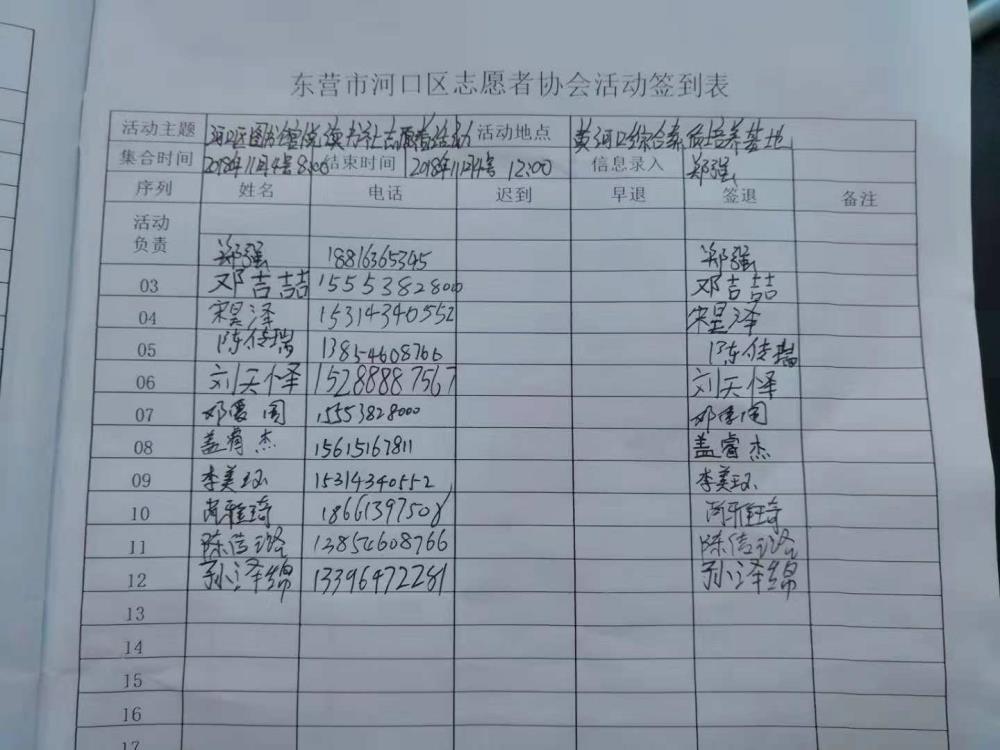 东营市河口区志愿者协会活动签到表
活动主题 河口区图书馆悦读书社志愿者活动 活动地点 黄河口综合素质培养基地
集合时间 2018年11月4号8:00 结束时间 2018年11月4号 12:00 信息录入 郑强
序列 姓名 电话 迟到 早退 签退 备注
活动
负责 郑强 18816365345 郑强
03 邓吉喆 15553828000 邓吉喆
04 宋昊泽 15314340552 宋昊泽
05 陈传瑞 13854608766 陈传瑞
06 刘天怿 15288887567 刘天怿
07 15553828000
08 盖睿杰 15615167811 盖睿杰
09 李美玖 15314340552 李美玖
10 尚雅琦 18661397508 尚雅琦
11 陈信璐 13854608766 陈信璐
12 孙泽锦 13396472281 孙泽锦
13
14
15
16
17